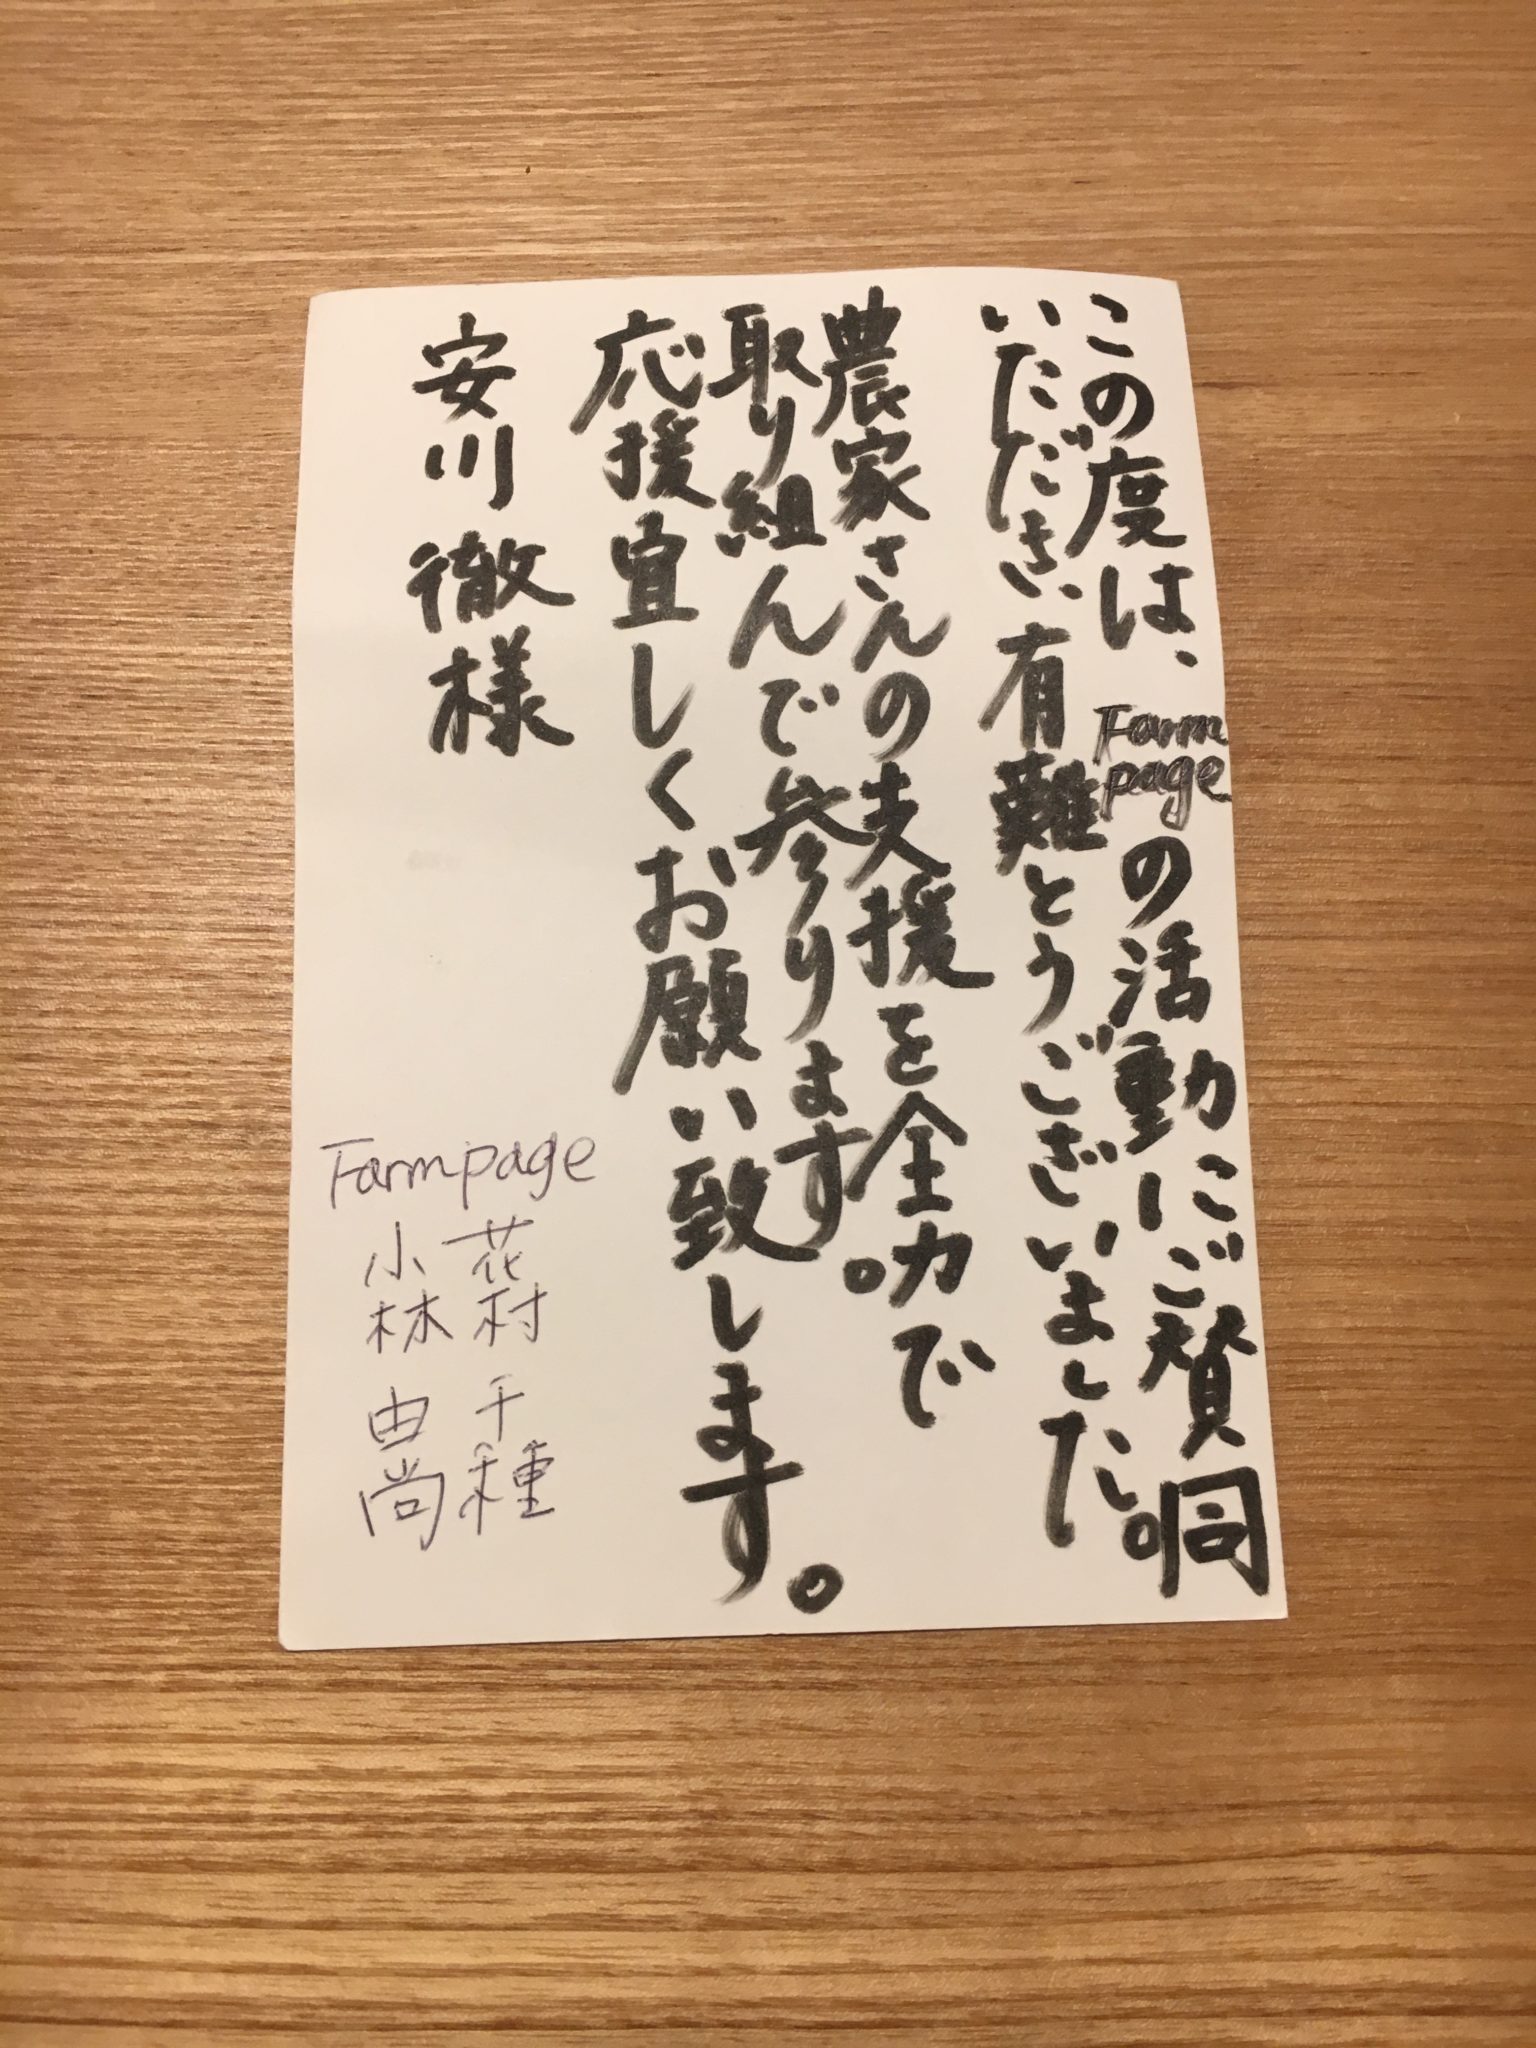 この度は、Farm pageの活動にご賛同
いただき、有難とうございました。
農家さんの支援を全力で
取り組んで参ります。
応援宜しくお願い致します。
安川 徹様
Farmpage
花村 千種
小林 由尚